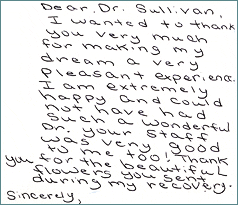 Dear Dr. Sullivan,
I wanted to thank
you very much
for making my
dream a very
pleasant experience.
I am extremely
happy and could
not have had
such a wonderful
Dr. your staff
was very good
to me too! Thank
you for the beautiful
flowers you sent
during my recovery.
Sincerely,